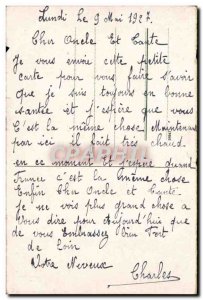 Lundi Le 9 Mai 1927.
Cher Oncle Et Tante
Je vous envoie cette petite
Carte pour vous faire savoir
que je suis toujours en bonne
santée et J'espère que vous
C'est la même chose Maintenant
par ici il fait très chaud.
en ce moment Et J'espère quand
France c'est la même chose
Enfin Cher Oncle et Tante.
je ne vois plus grand chose a
Vous dire pour Aujourd'hui que
de vous Embrassez bien Fort
de Loin
Votre Neveux
Charles